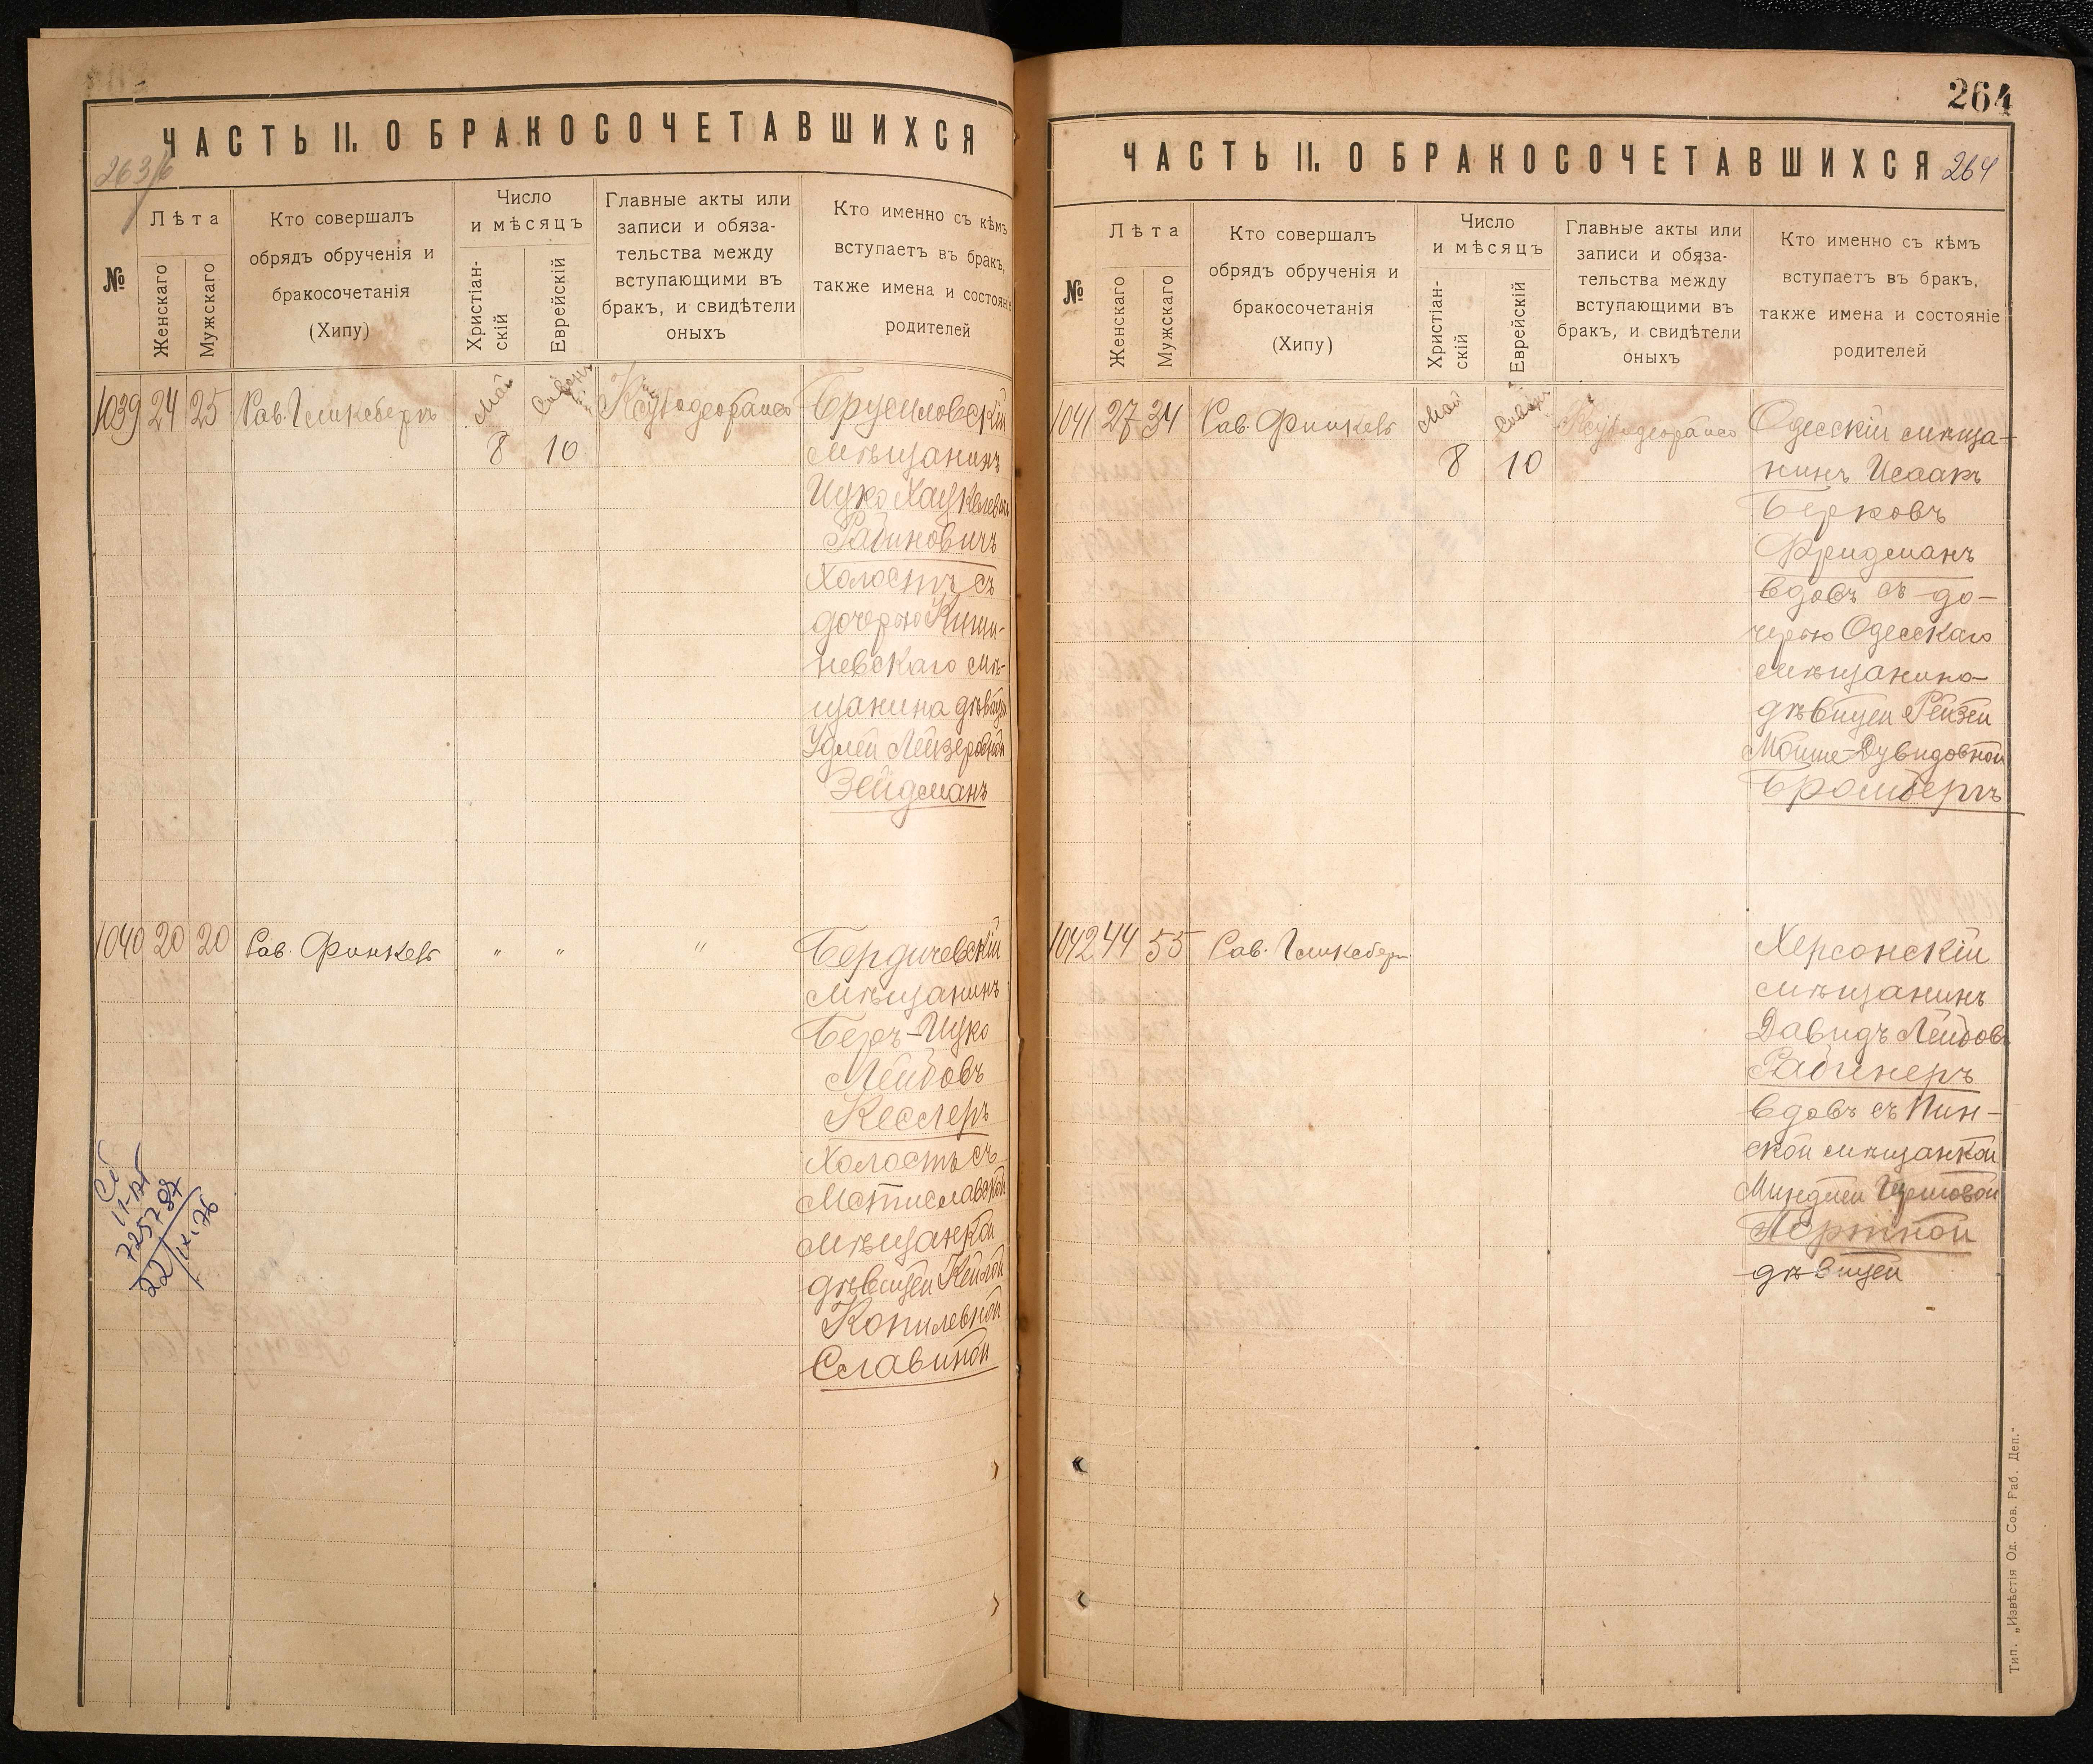 ЧАСТЬ II. О БРАКОСОЧЕТАВШИХСЯ
№
Лѣта
Женскаго
Мужскаго
Кто совершалъ
обрядъ обрученія и
бракосочетанія
(Хипу)
Число
и мѣсяцъ
Христіан-
скій
Еврейскій
Главные акты или
записи и обяза-
тельства между
вступающими въ
бракъ, и свидѣтели
оныхъ
Кто именно съ кѣмъ
вступаетъ въ бракъ,
также имена и состояніе
родителей
1039 24 25 Рав. Гликсбергъ Май Сивонъ
8 10
Брусиловскій
мѣщанинъ
Ицко Хацкелевъ
Рабиновичъ
холостъ съ
дочерью Киши-
невскаго мѣ-
щанина дѣвицей
Удлей Лейзеровной
Зейдманъ
1040 20 20 Рав. Финкель " " "
Бердичевскій
мѣщанинъ
Беръ-Ицко
Лейбовъ
Кеслеръ
холостъ съ
Мстиславской
мѣщанкой
дѣвицей Кейлой
Копилевной
Славиной
22/IX 76
264
ЧАСТЬ II. О БРАКОСОЧЕТАВШИХСЯ 264
№
Лѣта
Женскаго
Мужскаго
Кто совершалъ
обрядъ обрученія и
бракосочетанія
(Хипу)
Число
и мѣсяцъ
Христіан-
скій
Еврейскій
Главные акты или
записи и обяза-
тельства между
вступающими въ
бракъ, и свидѣтели
оныхъ
Кто именно съ кѣмъ
вступаетъ въ бракъ,
также имена и состояніе
родителей
1041 27 34 Рав. Финкель Май Сивонъ
8 10
Одесскій мѣща-
нинъ Исаакъ
Берковъ
Фридманъ
вдовъ съ до-
черью Одесскаго
мѣщанина
дѣвицей Рейзей
Мойше-Дувидовной
Бромбергъ
1042 44 55 Рав. Гликсберг
Херсонскій
мѣщанинъ
Давидъ Лейбовъ
Рабинеръ
вдовъ съ Пин-
ской мѣщанкой
Миндлей Гершовой
Портной
дѣвицей
Тип. „Извѣстія Од. Сов. Раб. Деп."